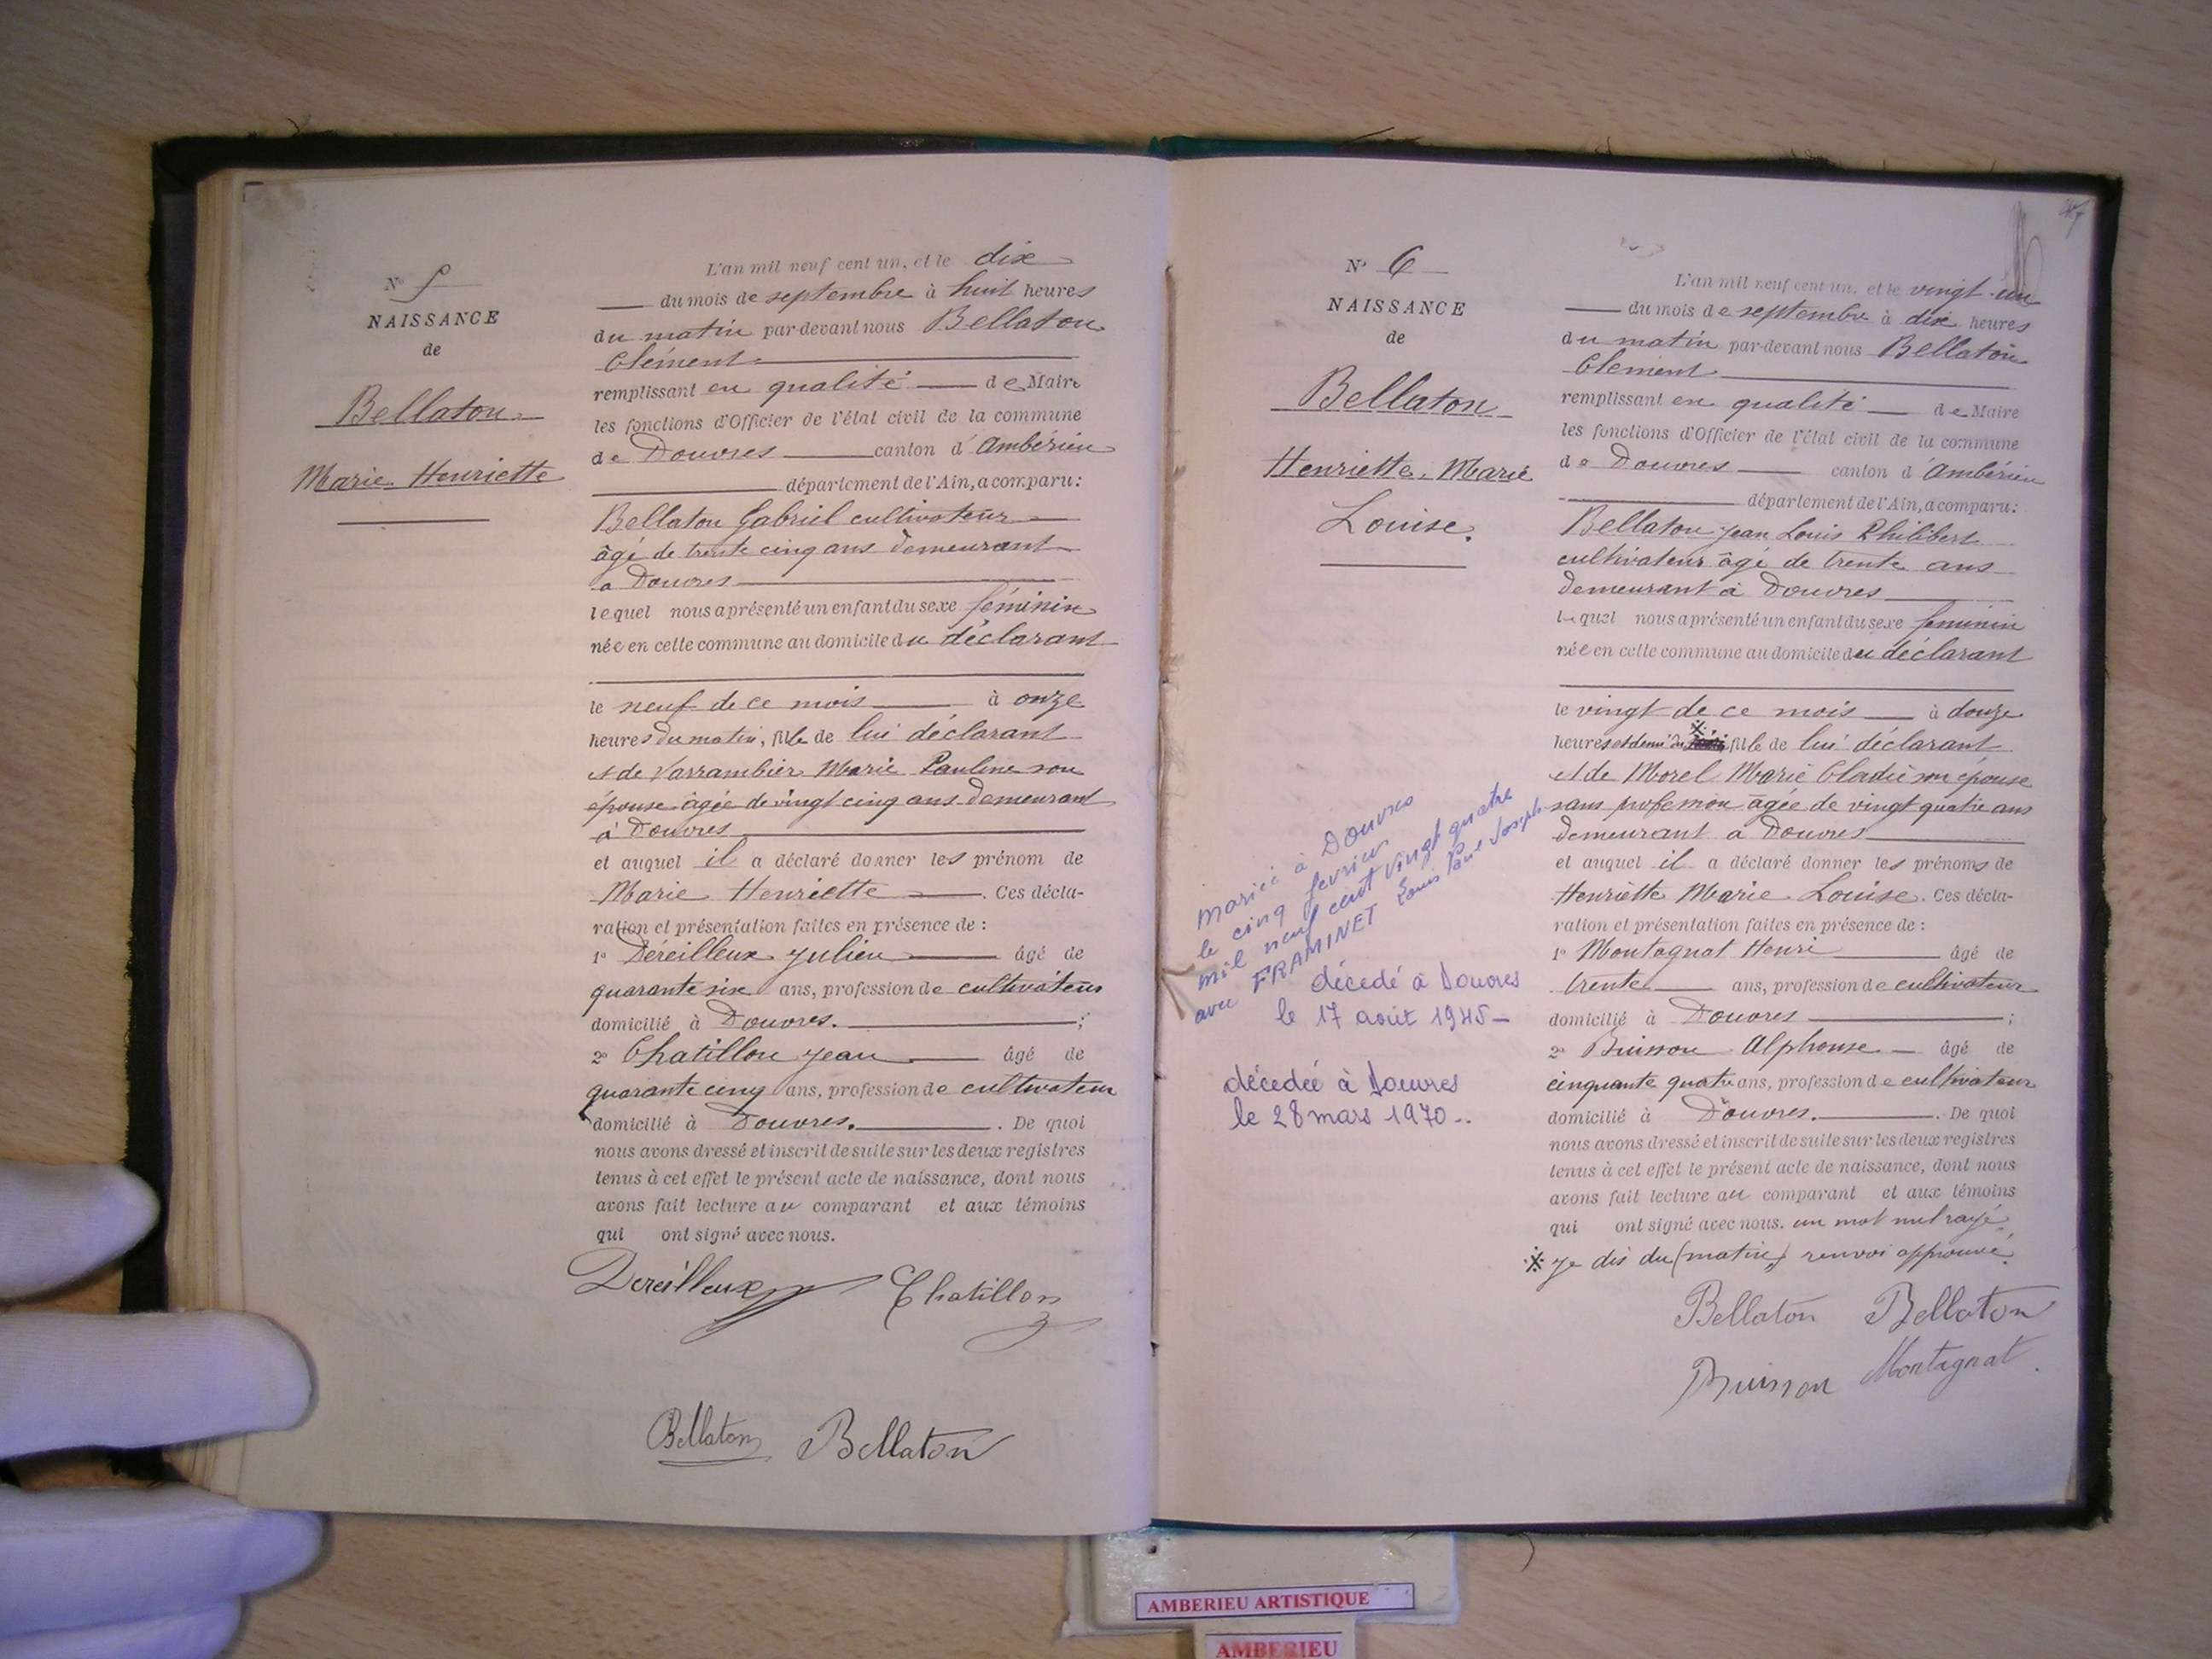 N° 5
NAISSANCE
de
Bellaton
Marie Henriette
L'an mil neuf cent un, et le dix
du mois de septembre à huit heures
du matin par-devant nous Bellaton
Clément
remplissant en qualité de Maire
les fonctions d'Officier de l'état civil de la commune
de Douvres canton d'Ambérieu
département de l'Ain, a comparu:
Bellaton Gabriel cultivateur
âgé de trente cinq ans demeurant
a Douvres
lequel nous a présenté un enfant du sexe féminin
née en cette commune au domicile du déclarant
le neuf de ce mois à onze
heures du matin, fille de lui déclarant
et de Varrambier Marie Pauline son
épouse âgée de vingt cinq ans demeurant
à Douvres
et auquel il a déclaré donner les prénom de
Marie Henriette. Ces décla-
ration et présentation faites en présence de :
1° Déreilleux Julien âgé de
quarante six ans, profession de cultivateur
domicilié à Douvres. ;
2° Chatillon Jean âgé de
quarante cinq ans, profession de cultivateur
domicilié à Douvres. . De quoi
nous avons dressé et inscrit de suite sur les deux registres
tenus à cet effet le présent acte de naissance, dont nous
avons fait lecture au comparant et aux témoins
qui ont signé avec nous.
Dereilleux Chatillon
Bellaton Bellaton
N° 6
NAISSANCE
de
Bellaton
Henriette. Marie
Louise.
mariée à Douvres
le cinq fevrier
mil neuf cent vingt quatre
avec FRAMINET Louis Paul Joseph
décédé à Douvres
le 17 août 1945
décedeé à Douvres
le 28 mars 1970..
L'an mil neuf cent un, et le vingt-un
du mois de septembre à dix heures
du matin par-devant nous Bellaton
Clement
remplissant en qualité de Maire
les fonctions d'Officier de l'état civil de la commune
de Douvres canton d'Ambérieu
département de l'Ain, a comparu:
Bellaton Jean Louis Philibert
cultivateur âgé de trente ans
demeurant à Douvres
lequel nous a présenté un enfant du sexe feminin
née en cette commune au domicile du déclarant
le vingt de ce mois à douze
heures et demi du ※ fille de lui déclarant
et de Morel Marie Cladie son épouse
sans profession âgée de vingt quatre ans
demeurant a Douvres
et auquel il a déclaré donner les prénoms de
Henriette Marie Louise. Ces décla-
ration et présentation faites en présence de :
1° Montagnat Henri âgé de
trente ans, profession de cultivateur
domicilié à Douvres ;
2° Buisson Alphonse âgé de
cinquante quatre ans, profession de cultivateur
domicilié à Douvres. . De quoi
nous avons dressé et inscrit de suite sur les deux registres
tenus à cet effet le présent acte de naissance, dont nous
avons fait lecture au comparant et aux témoins
qui ont signé avec nous. un mot nul rayé.
※ Je dis du (matin) renvoi approuvé.
Bellaton Bellaton
Buisson Montagnat
AMBERIEU ARTISTIQUE
AMBERIEU